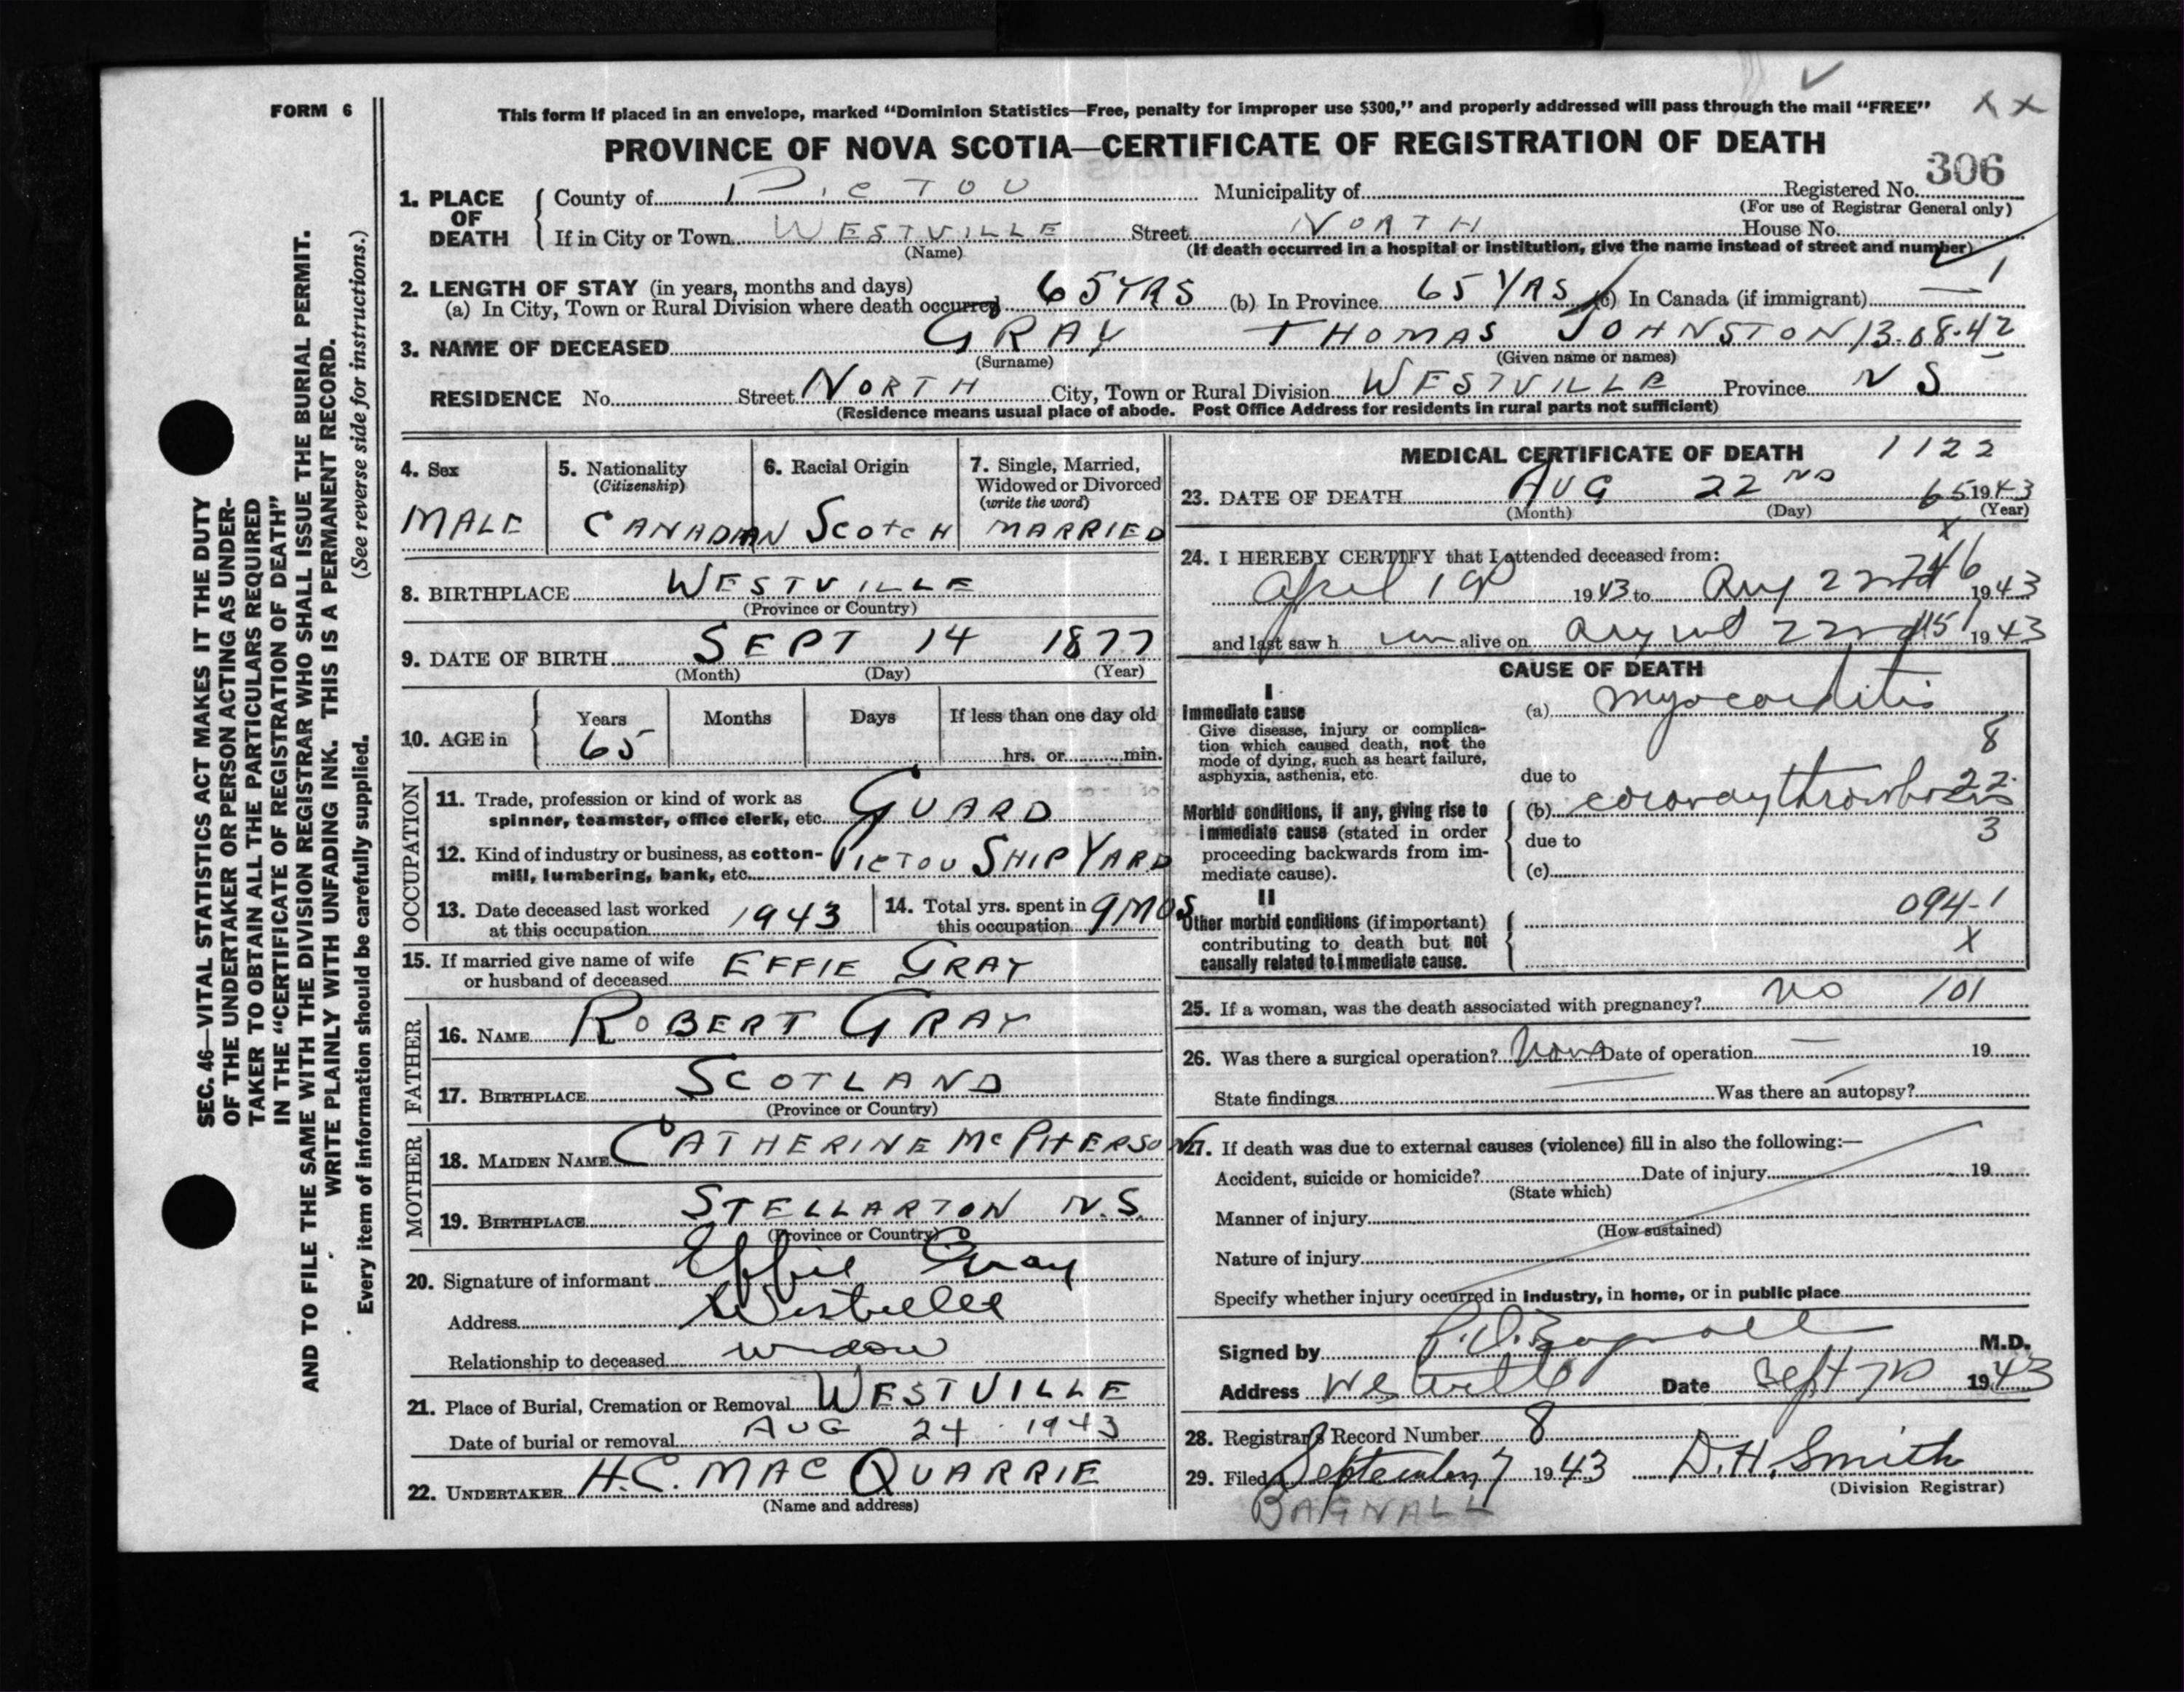 FORM 6
This form if placed in an envelope, marked “Dominion Statistics—Free, penalty for improper use $300,” and properly addressed will pass through the mail “FREE”
X X
PROVINCE OF NOVA SCOTIA—CERTIFICATE OF REGISTRATION OF DEATH
306
1. PLACE OF DEATH
County of PICTOU Municipality of Registered No.
(For use of Registrar General only)
If in City or Town WESTVILLE Street NORTH House No.
(Name) (If death occurred in a hospital or institution, give the name instead of street and number)
2. LENGTH OF STAY (in years, months and days)
(a) In City, Town or Rural Division where death occurred 65 YRS (b) In Province 65 YRS (c) In Canada (if immigrant) — 1
3. NAME OF DECEASED GRAY THOMAS JOHNSTON 13.08.42
(Surname) (Given name or names)
RESIDENCE No. Street NORTH City, Town or Rural Division WESTVILLE Province N S
(Residence means usual place of abode. Post Office Address for residents in rural parts not sufficient)
4. Sex
MALE
5. Nationality
(Citizenship)
CANADIAN
6. Racial Origin
SCOTCH
7. Single, Married, Widowed or Divorced
(write the word)
MARRIED
8. BIRTHPLACE WESTVILLE
(Province or Country)
9. DATE OF BIRTH SEPT 14 1877
(Month) (Day) (Year)
10. AGE in
Years Months Days If less than one day old
65 hrs. or min.
OCCUPATION
11. Trade, profession or kind of work as
spinner, teamster, office clerk, etc. GUARD
12. Kind of industry or business, as cotton-
mill, lumbering, bank, etc. PICTOU SHIP YARD
13. Date deceased last worked
at this occupation 1943
14. Total yrs. spent in
this occupation 9 MOS
15. If married give name of wife
or husband of deceased EFFIE GRAY
FATHER
16. NAME ROBERT GRAY
17. BIRTHPLACE SCOTLAND
(Province or Country)
MOTHER
18. MAIDEN NAME CATHERINE McPHERSON
19. BIRTHPLACE STELLARTON N.S.
(Province or Country)
20. Signature of informant Effie Gray
Address Westville
Relationship to deceased widow
21. Place of Burial, Cremation or Removal WESTVILLE
Date of burial or removal AUG 24 1943
22. UNDERTAKER H.C. MACQUARRIE
(Name and address)
MEDICAL CERTIFICATE OF DEATH 1122
23. DATE OF DEATH AUG 22ND 65 1943
(Month) (Day) (Year)
X
24. I HEREBY CERTIFY that I attended deceased from:
746
April 19 1943 to Aug 22nd 1943
and last saw h im alive on August 22nd 151 1943
CAUSE OF DEATH
I
Immediate cause
Give disease, injury or complica-
tion which caused death, not the
mode of dying, such as heart failure,
asphyxia, asthenia, etc.
(a) myocarditis
8
due to
Morbid conditions, if any, giving rise to
immediate cause (stated in order
proceeding backwards from im-
mediate cause).
(b) coronary thrombosis 22
due to 3
(c)
II
Other morbid conditions (if important)
contributing to death but not
causally related to immediate cause.
094-1
X
25. If a woman, was the death associated with pregnancy? no 101
26. Was there a surgical operation? None Date of operation — 19
State findings — Was there an autopsy? —
27. If death was due to external causes (violence) fill in also the following:—
Accident, suicide or homicide? Date of injury 19
(State which)
Manner of injury
(How sustained)
Nature of injury
Specify whether injury occurred in industry, in home, or in public place
Signed by Bagnall M.D.
Address Westville Date Sept 7th 1943
28. Registrar's Record Number 8
29. Filed September 7 1943 D.H. Smith
(Division Registrar)
BAGNALL
SEC. 46—VITAL STATISTICS ACT MAKES IT THE DUTY
OF THE UNDERTAKER OR PERSON ACTING AS UNDER-
TAKER TO OBTAIN ALL THE PARTICULARS REQUIRED
IN THE “CERTIFICATE OF REGISTRATION OF DEATH”
AND TO FILE THE SAME WITH THE DIVISION REGISTRAR WHO SHALL ISSUE THE BURIAL PERMIT.
WRITE PLAINLY WITH UNFADING INK. THIS IS A PERMANENT RECORD.
Every item of information should be carefully supplied. (See reverse side for instructions.)